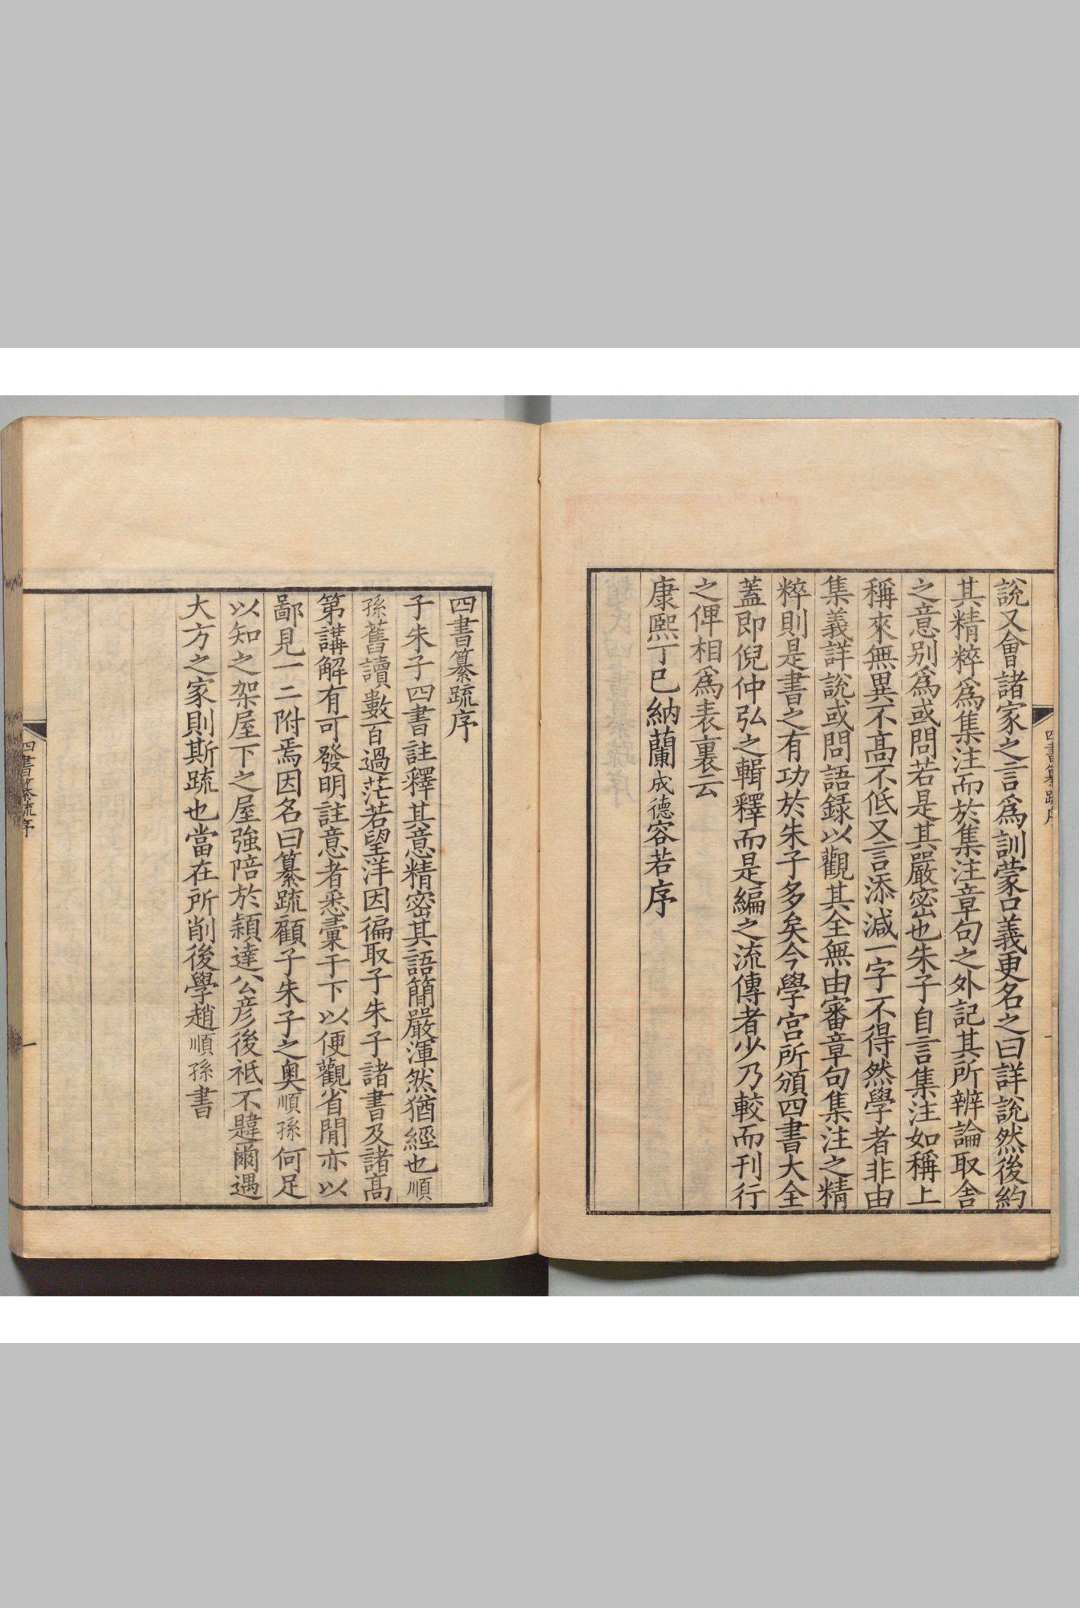 說又會諸家之言爲訓蒙口義更名之曰詳說然後約
其精粹爲集注而於集注章句之外記其所辨論取舍
之意别爲或問若是其嚴密也朱子自言集注如稱上
稱來無異不高不低又言添減一字不得然學者非由
集義詳說或問語録以觀其全無由審章句集注之精
粹則是書之有功於朱子多矣今學宫所頒四書大全
蓋即倪仲弘之輯釋而是編之流傳者少乃較而刊行
之俾相爲表裏云
康熙丁巳納蘭成德容若序
四書纂疏序
四書纂疏序
子朱子四書註釋其意精密其語簡嚴渾然猶經也順
孫舊讀數百過茫若望洋因徧取子朱子諸書及諸高
第講解有可發明註意者悉彙于下以便觀省閒亦以
鄙見一二附焉因名曰纂疏顧子朱子之奥順孫何足
以知之架屋下之屋強陪於穎達公彦後祗不韙爾遇
大方之家則斯疏也當在所削後學趙順孫書
四書纂疏序
一